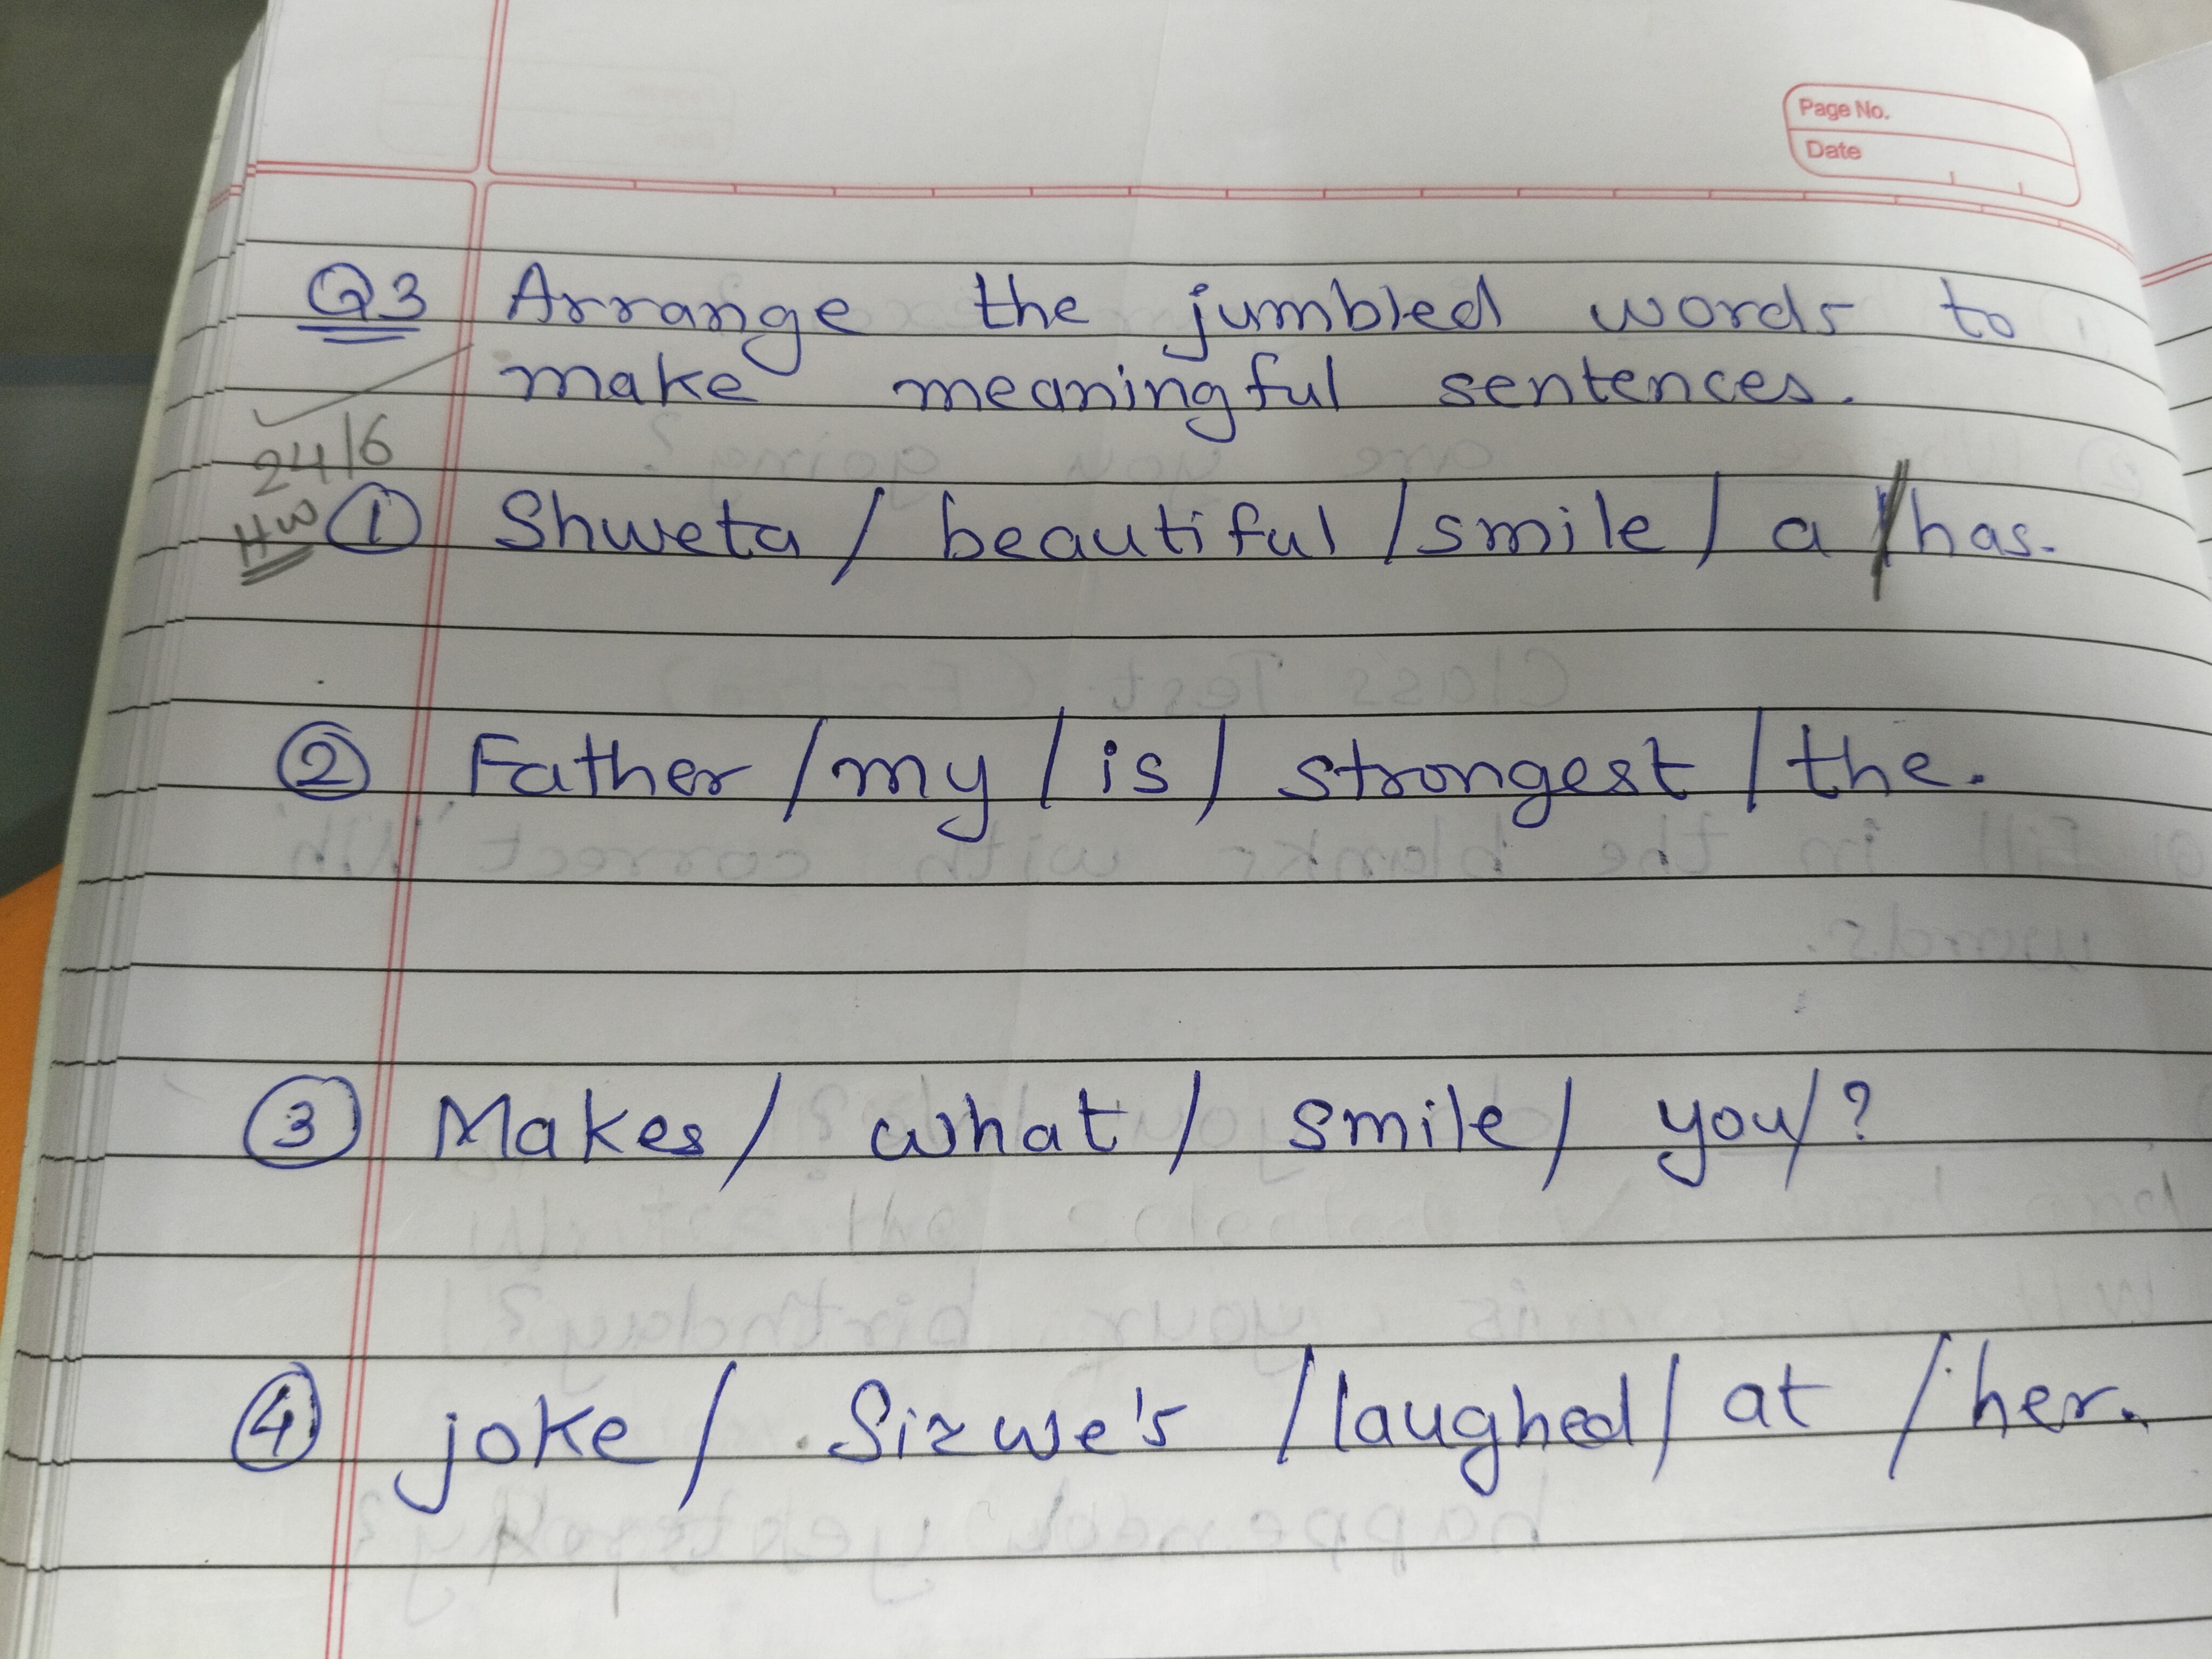 Page No.
Date
Q3 Arrange the jumbled words to
make meaningful sentences.
24/6
HW
① Shweta / beautiful / smile / a / has.
② Father / my / is / strongest / the.
③ Makes / what / smile / you / ?
④ joke / Sizwe's / laughed / at / her.